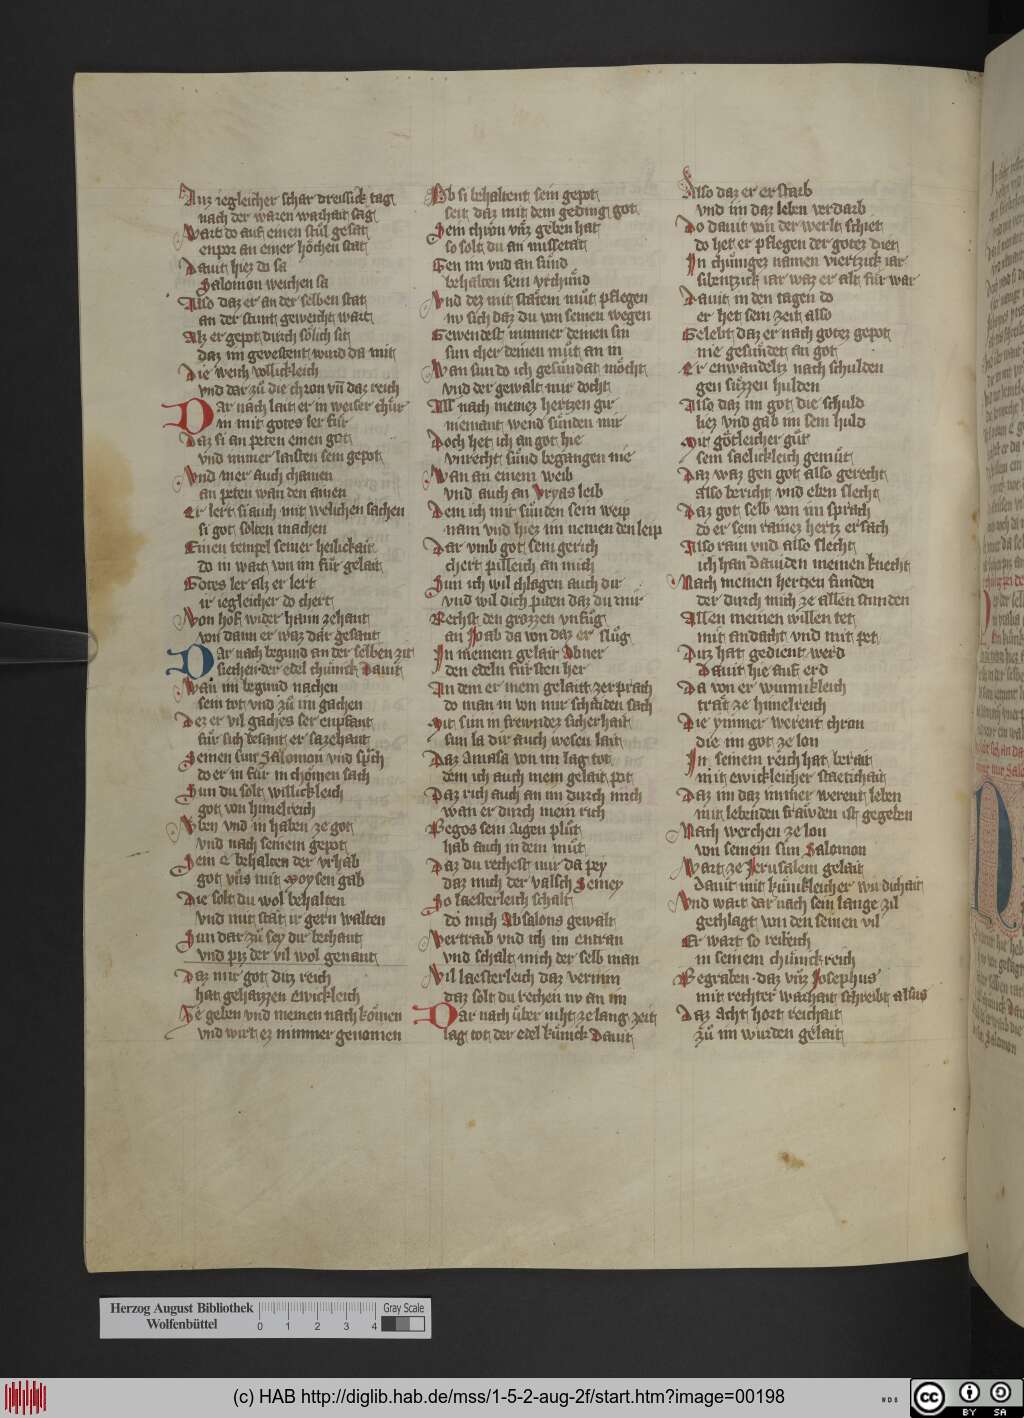 Auz iegleicher schar dreissick tag
nach der waren warhait sag
Wart do auf einen stůl gesat
enpor an einer höchen stat
Dauit hiez do sa
Salomon weichen sa
Also daz er an der selben stat
an der stunt geweicht wart
Alz er gepot durch sölich sit
daz im gevestent wurd da mit
Die weich vollickleich
vnd dar zů die chron vn̄ daz reich
Dar nach lait er in weiser chür
in mit gotes ler für
Daz si an peten einen got
vnd immer laisten sein gepot
Vnd nier auch chainen
an peten wan den ainen
Er lert si auch mit welichen sachen
si got solten machen
Einen tempel seiner heilickait
do in wart von im für gelait
Gotes ler alz er lert
ir iegleicher do chert
Von hof wider haim zehant
von dann er waz dar gesant
Dar nach begund an der selben zit
siechen der edel chünick Dauit
Wan im begund nachen
sein tot vnd zů im gachen
Dez er vil gaches ser enpfant
für sich besant er sazehant
Seinen sun Salomon vnd sprach
do er in für in chomen sach
Sun du solt willickleich
got von himelreich
Vben vnd in haben ze got
vnd nach seinem gepot
Sein E behalten der vrhab
got vns mit Moysen gab
Die solt du wol behalten
vnd mit stät ir gern walten
Sun dar zů sey dir bechant
vnd piz der vil wol genant
Daz mir got ditz reich
hat gehaizzen Ewickleich
Ze geben vnd meinen nach komen
vnd wirt ez nimmer genomen
Ob si behaltent sein gepot
seit daz mit dem geding got
Sein chron vnz geben hat
so solt du an missetat
Gen im vnd an sünd
behalten sein vrchünd
Vnd dez mit stätem můt pflegen
nv sich daz du von seinen wegen
Gewendest nimmer deinen sin
sun cher deinen můt an in
Wan sun do ich gesündat möcht
vnd der gewalt mir docht
All nach meinez hertzen gir
niemant wend sünden mir
Doch het ich an got hie
vnrecht sünd begangen nie
Wan an einem weib
vnd auch an Vryas leib
Dem ich mit sünden sein weip
nam vnd hiez im nemen den leip
Dar vmb got sein gerich
chert pilleich an mich
Sun ich wil chlagen auch dir
vnd wil dich piten daz du mir
Rechst den grozzen vnfůg
an Joab da von daz er slůg
In meinem gelait Abner
den edeln fürsten her
An dem er mein gelaitt zerprach
do man in von mir schaiden sach
Mit sun in frewndez sicherhait
sun la dir auch wesen lait
Daz Amasa von im lag tot
dem ich auch mein gelait pot
Daz rich auch an im durch mich
wan er durch mein rich
Pegos sein aigen plůt
hab auch in dem můt
Daz du rechest mir da pey
daz mich der valsch Semey
So laesterleich schalt
do mich Absalons gewalt
Vertraib vnd ich im entran
vnd schalt mich der selb man
Vil laesterleich daz vernim
daz solt du rechen nv an im
Dar nach über niht ze lang zeit
lag tot der edel künick Dauit
Also daz er erstarb
vnd im daz leben verdarb
Do dauit von der werlt schiet
do het er pflegen der gotez diet
In chünigez namen viertzick iar
sibentzick iar waz er alt für war
Dauit in den tagen do
er het sein zeit also
Gelebt daz er nach gotez gepot
nie gesündet an got
Er enwandeltz nach schulden
gen süzzen hulden
Also daz im got die schuld
liez vnd gab im sein huld
Mit götleicher gůt
sein saelickleich gemůt
Daz waz gen got also gerecht
also bericht vnd eben slecht
Daz got selb von im sprach
do er sein rainez hertz ersach
Also rain vnd also slecht
ich han Dauiden meinen knecht
Nach meinem hertzen funden
der durch mich ze allen stunden
Allen meinen willen tet
mit andacht vnd mit pet
Ditz hat gedient werd
Dauit hie auf erd
Da von er wunnikleich
trat ze himelreich
Die ymmer werent chron
die im got ze lon
In seinem reich hat berait
mit ewickleicher staetichait
Daz im daz immer werent leben
mit lebenden frawden ist gegeben
Nach werchen ze lon
von seinem sun Salomon
Wart ze Jerusalem gelait
dauit mit künkleicher wirdichait
Vnd wart dar nach sein lange zil
gechlagt von den seinen vil
Er wart so reileich
in seinem chünickreich
Begraben daz vnz Josephus
mit rechter warhait schreibt alsus
Daz acht hort reichait
zů im wurden gelait
Herzog August Bibliothek
Wolfenbüttel
0 1 2 3 4
Gray Scale
(c) HAB http://diglib.hab.de/mss/1-5-2-aug-2f/start.htm?image=00198
WDB
cc BY SA